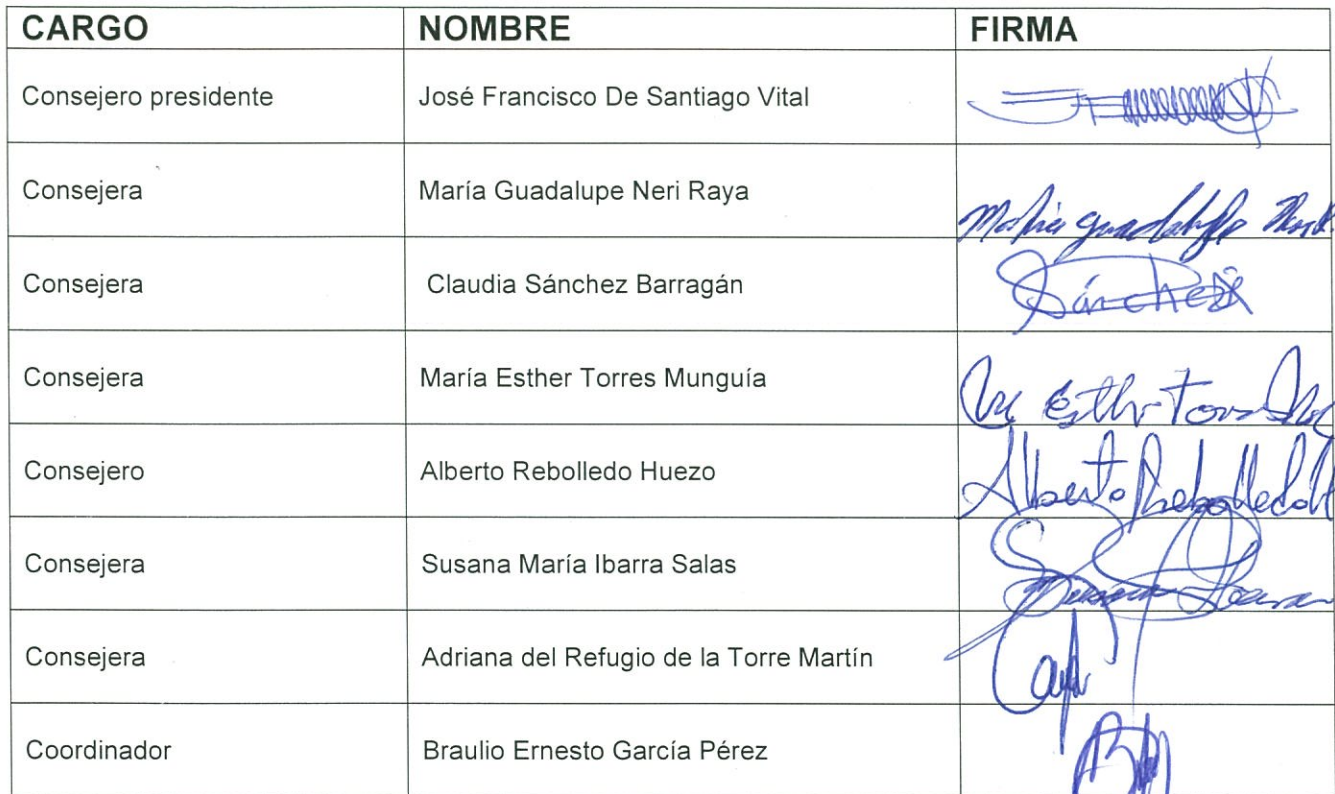 CARGO NOMBRE FIRMA
Consejero presidente José Francisco De Santiago Vital
Consejera María Guadalupe Neri Raya María Guadalupe
Consejera Claudia Sánchez Barragán Sánchez
Consejera María Esther Torres Munguía Ma Esther Torres
Consejero Alberto Rebolledo Huezo Alberto Rebolledo H
Consejera Susana María Ibarra Salas Susana Ibarra
Consejera Adriana del Refugio de la Torre Martín
Coordinador Braulio Ernesto García Pérez